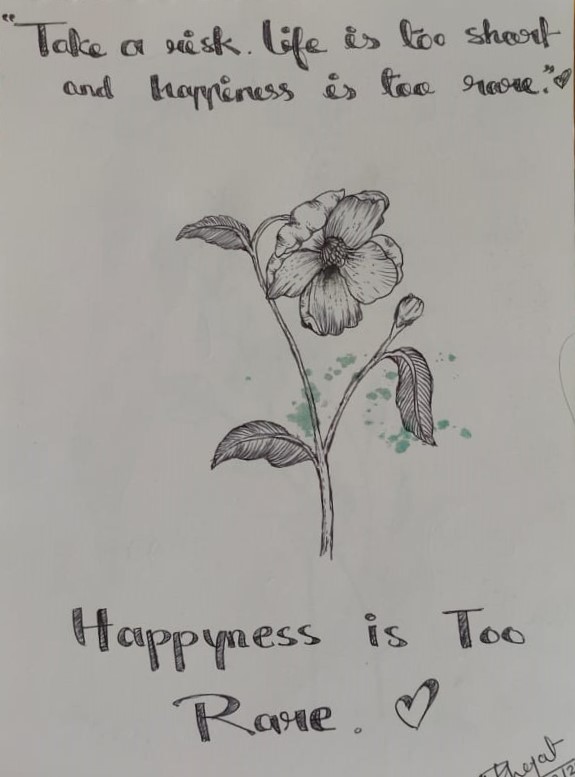 “Take a risk. Life is too short
and happiness is too rare.”
Happyness is Too
Rare.